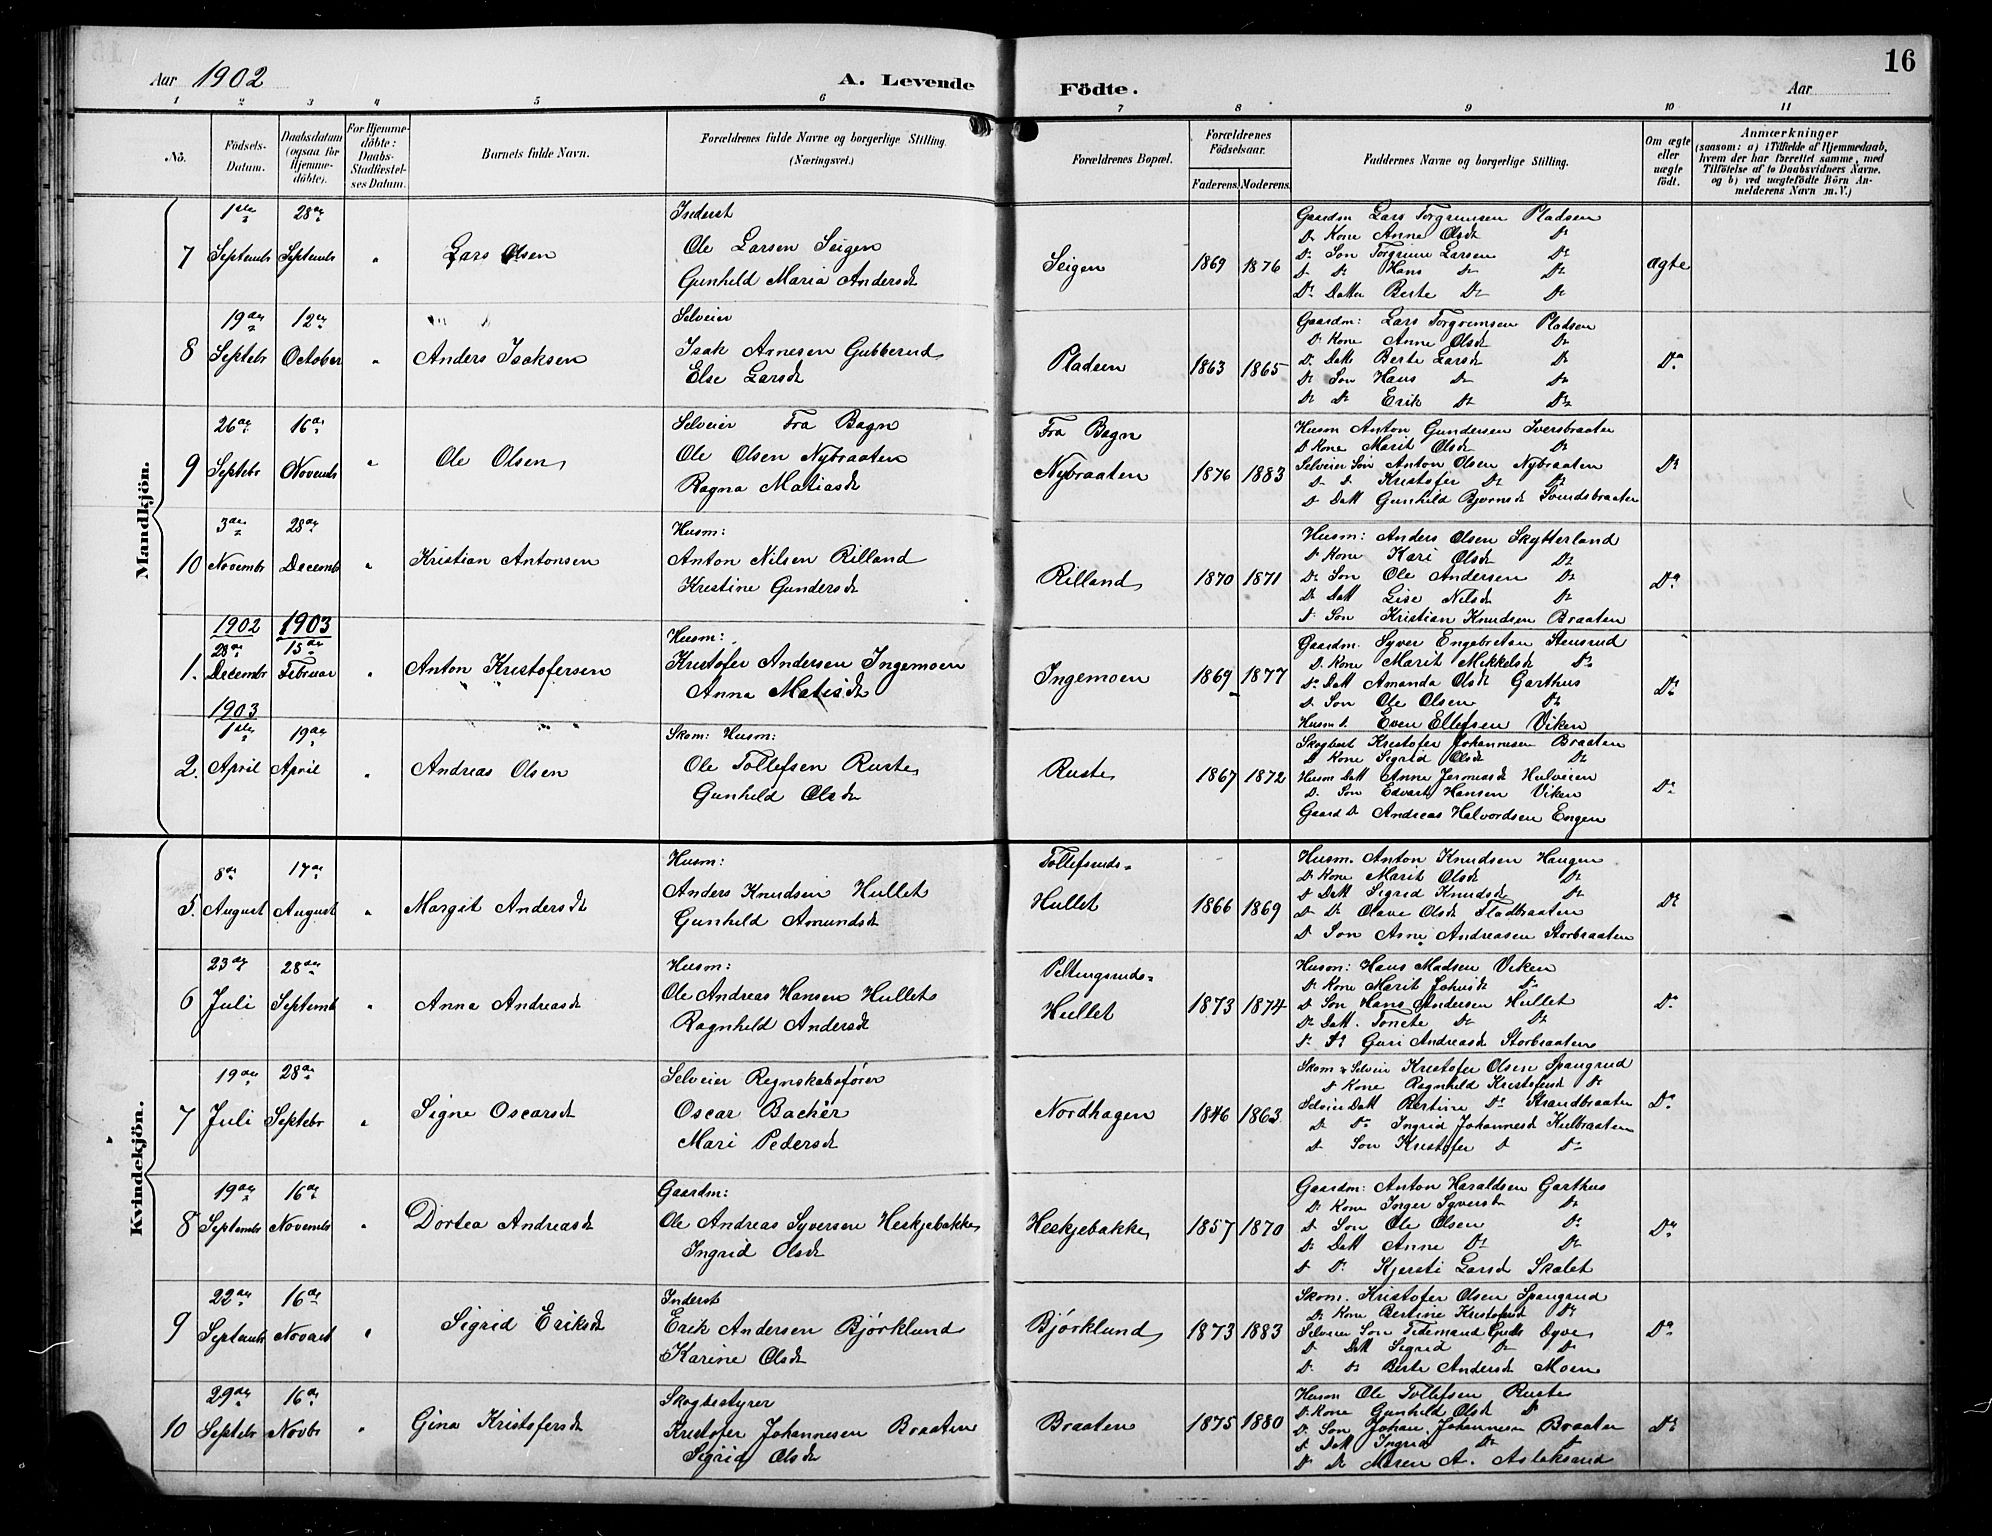 16
Aar 1902 A. Levende Födte. Aar
1 2 3 4 5 6 7 8 9 10 11
No.
Födsels-Datum.
Daabsdatum (ogsaa for Hjemme-döbte).
For Hjemme-döbte: Daabs-Stadfæstel-ses Datum.
Barnets fulde Navn.
Forældrenes fulde Navne og borgerlige Stilling. (Næringsvei.)
Forældrenes Bopæl.
Forældrenes Födselsaar.
Faderens. Moderens.
Faddernes Navne og borgerlige Stilling.
Om ægte eller uægte födt.
Anmærkninger
(saasom: a) i Tilfælde af Hjemmedaab, hvem der har forrettet samme, med Tilföielse af to Daabsvidners Navne, og b) ved uægtefödte Börn An-melderens Navn m. V.)
Mandkjön.
7 1ste Septembr 28de Septembr " Lars Olsen
Inderst
Ole Larsen Seigen
Gunhild Maria Andersdt
Seigen 1869 1876
Gaardm Lars Torgrimsen Pladsen
Do Kone Anne Olsdt Do
Do Son Torgrim Larsen Do
Do Do Hans Do Do
Do Datter Berte Do Do
ægte
8 19de Septebr 12te October " Anders Isaksen
Selveier
Isak Arnesen Gubberud
Else Larsdt
Pladsen 1863 1865
Gaardm: Lars Torgrimsen Pladsen
Do Kone Anne Olsdt Do
Do Datt Berte Larsdt Do
Do Son Hans Do Do
Do Do Erik Do Do
Do
9 26de Septebr 16de Novembr " Ole Olsen
Selveier Fra Bagn
Ole Olsen Nybraaten
Ragna Matiasdt
Fra Bagn
Nybraaten 1876 1883
Husm Anton Gundersen Iversbraaten
Do Kone Marit Olsdt Do
Selveier Søn Anton Olsen Nybraaten
Do Do Kristofer Do Do
Do Datt Gunhild Bjørnsdt Svendsbraaten
Do
10 3de Novembr 28de Decembr " Kristian Antonsen
Husm:
Anton Nilsen Rilland
Kristine Gundersdt
Rilland 1870 1871
Husm: Anders Olsen Skytterland
Do Kone Kari Olsdt Do
Do Son Ole Andersen Do
Do Datt Lise Nilsdt Do
Do Son Kristian Knudsen Braaten
Do
1902 1903
1. 28de Decembr 15de Februar " Anton Kristofersen
Husm:
Kristofer Andersen Ingemoen
Anna Matisdt
Ingemoen 1869 1877
Gaardm. Syver Engebretsen Stensrud
Do Kone Marit Mikkelsdt Do
Do Datt Amanda Olsdt Garthus
Do Son Ole Olsen Do
Husm s. Even Ellefsen Viken
Do
1903
2. 1ste April 19de April " Andreas Olsen
Skom: Husm:
Ole Tollefsen Ruste
Gunhild Olsdt
Ruste 1867 1872
Skogbest Kristofer Johannesen Braaten
Do Kone Sigrid Olsdt Do
Husm Datt Anne Jeroniasdt Hulveien
Do Son Edvart Hansen Viken
Gaard Do Andreas Halvordsen Engen
Do
Kvindekjön.
5. 8de August 17de August " Margit Andersdt
Husm:
Anders Knudsen Hullet
Gunhild Amundsdt
Tollefsruds-
Hullet 1866 1869
Husm. Anton Knudsen Haugen
Do Kone Marit Olsdt Do
Do Datt Sigrid Knudsdt Do
Do Do Olave Olsdt Fladbraaten
Do Son Arne Andreasen Storbraaten
Do
6 23de Juli 28de Septemb " Anna Andreasdt
Husm:
Ole Andreas Hansen Hullet
Ragnhild Andersdt
Peltingruds-
Hullet 1873 1874
Husm: Hans Madsen Viken
Do Kone Marit Johnsdt Do
Do Son Hans Andersen Hullet
Do Datt. Tonete Do Do
Do Do Guri Andreasdt Storbraaten
Do
7 19de Juli 28de Septebr " Signe Oscarsdt
Selveier Regnskabsfører
Oscar Backer
Mari Pedersdt
Nordhagen 1846 1863
Skom & Selveier Kristofer Olsen Spangrud
Do Kone Ragnhild Kristofersdt Do
Selveier Datt Bertine Do Strandbraaten
Do Do Ingrid Johannesdt Kulbraaten
Do Son Kristofer Do Do
Do
8 19de Septembr 16de Novembr " Dortea Andreasdt
Gaardm:
Ole Andreas Syversen Heskjebakke
Ingrid Olsdt
Heskjebakke 1857 1870
Gaardm: Anton Haraldsen Garthus
Do Kone Inger Syversdt Do
Do Son Ole Olsen Do
Do Datt Anne Do Do
Do Do Kjersti Larsdt Skalet
Do
9 22de Septembr 16de Novbr " Sigrid Eriksdt
Inderst
Erik Andersen Bjørklund
Karine Olsdt
Bjørklund 1873 1883
Skom. Kristofer Olsen Spangrud
Do Kone Bertine Kristofersdt Do
Selveier Son Tidemand Gulls Dyve
Do Datt Sigrid Do Do
Do Do Berte Andersdt Moen
Do
10 29de Septebr 16de Novbr " Gina Kristofersdt
Skogbestyrer
Kristofer Johannesen Braaten
Sigrid Olsdt
Braaten 1875 1880
Husm Ole Tollefsen Ruste
Do Kone Gunhild Olsdt Do
Do Son Johan Johannesen Braaten
Do Datt Ingrid Do Do
Do Do Maren A. Aslaksrud
Do